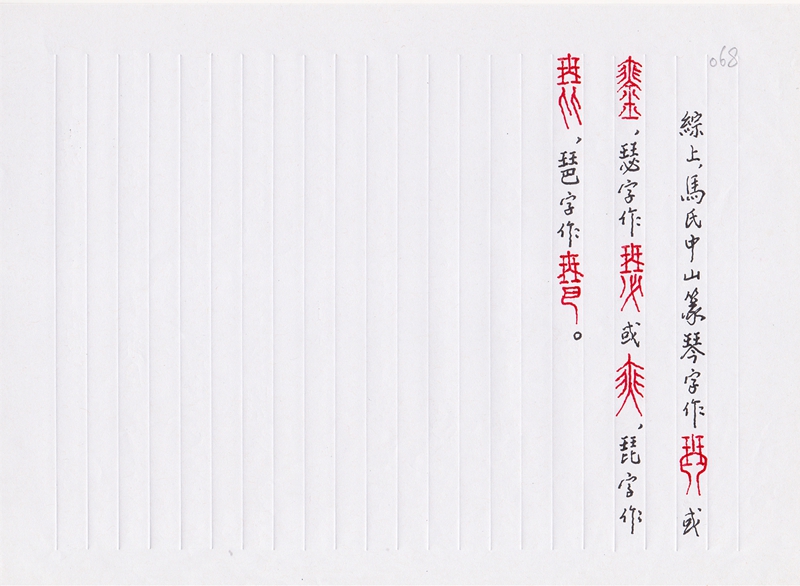 068
綜上，馬氏中山篆琴字作或
，瑟字作或，琵字作
，琶字作。